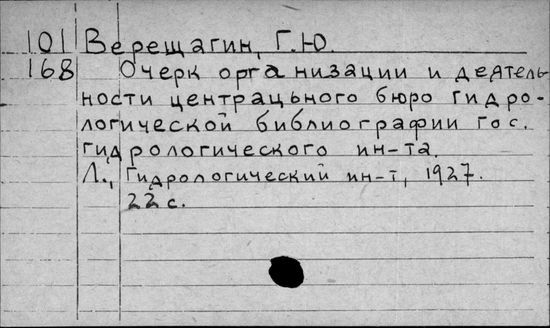 101 Верещагин, Г.Ю.
168 Очерк организации и деятель-
ности центрацьного бюро гидро-
логической библиографии Гос.
гидрологического ин-та.
Л., Гидрологический ин-т, 1927.
22 с.